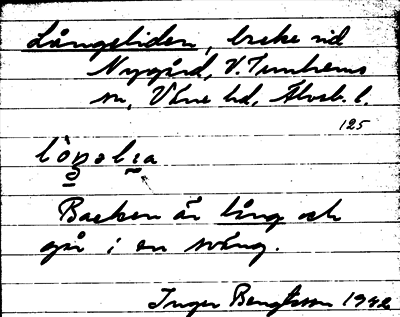 Långeliden, backe vid
Nygård, V. Tunhems
sn, Väne hd, Älvsb. l.
125
Backen är lång och
går i en sväng.
Inger Bengtsson 1942